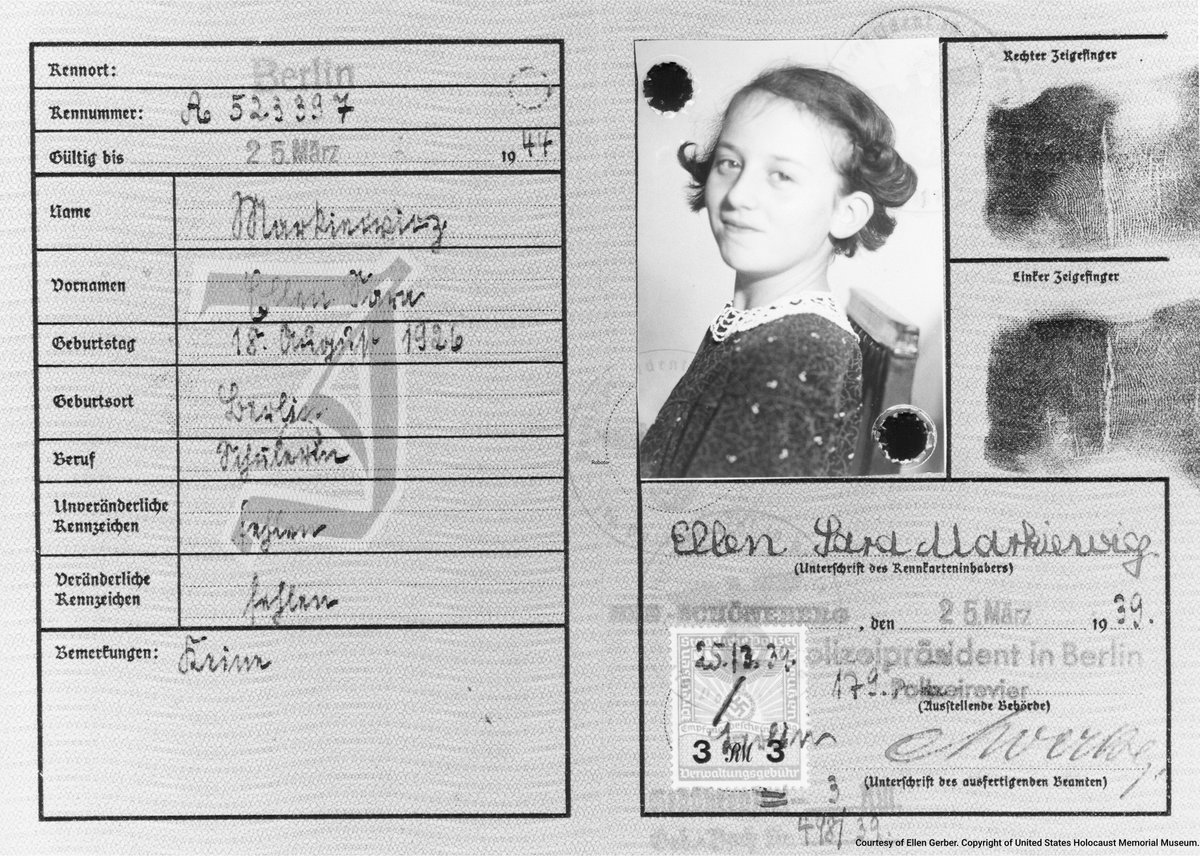 Kennort: Berlin
Kennummer: A 523397
Gültig bis 25. März 1944
Name Markiewicz
Vornamen Ellen Sara
Geburtstag 18. August 1926
Geburtsort Berlin
Beruf Schülerin
Unveränderliche Kennzeichen fehlen
Veränderliche Kennzeichen fehlen
Bemerkungen: Keine
J
Rechter Zeigefinger
Linker Zeigefinger
Ellen Sara Markiewicz
(Unterschrift des Kennkarteninhabers)
SCHÖNEBERG, den 25. März 1939.
Polizeipräsident in Berlin
179. Polizeirevier
(Ausstellende Behörde)
(Unterschrift des ausfertigenden Beamten)
25./3.39.
3 RM 3
Verwaltungsgebühr
3
498/39.
Courtesy of Ellen Gerber. Copyright of United States Holocaust Memorial Museum